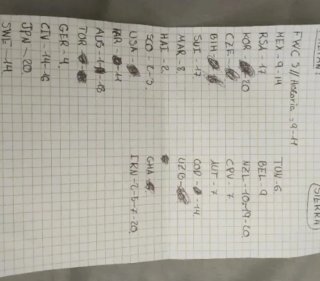 SIERRA
FWC 3 // Historia, 9-11
MEX - 9-14
RSA - 17
KOR 20
CZE -
BIH -
SUI - 17
MAR - 8
HAI - 2
SCO - 2-3
USA -
PAR - 11
AUS - 1 - 18
TOR -
GER - 4
CIV - 14-16
JPN - 20
SWE - 14
TUN - 6
BEL 9
NZL - 10-19-20
CPV - 7
AUT - 7
COD - 14
UZB
GHA
IRN - 2-5-7-20